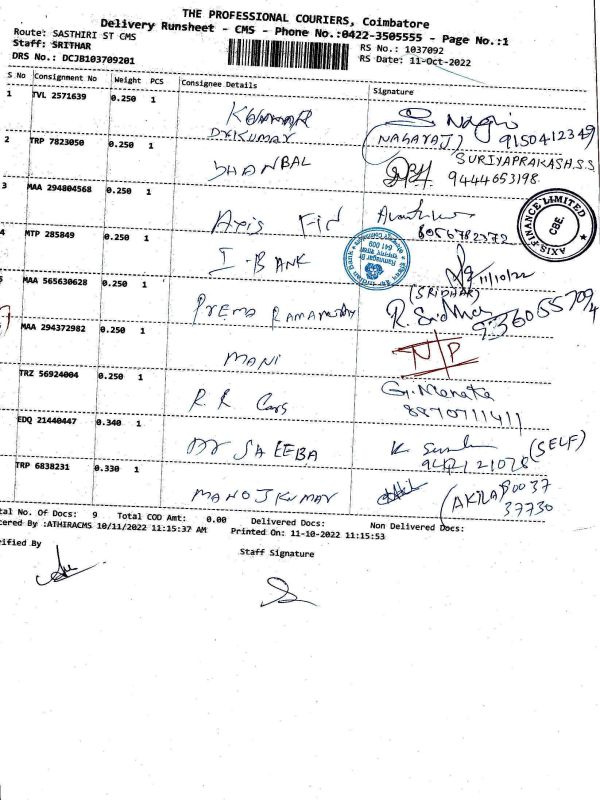 THE PROFESSIONAL COURIERS, Coimbatore
Delivery Runsheet - CMS - Phone No.:0422-3505555 - Page No.:1
Route: SASTHIRI ST CMS
Staff: SRITHAR
RS No.: 1037092
DRS No.: DCJB103709201
RS Date: 11-Oct-2022
S No Consignment No Weight PCS Consignee Details Signature
1 TVL 2571639 0.250 1
KUMMAR
DYKUMAR
(NAGARAJ) 9150412349
2 TRP 7823050 0.250 1 DHANBAL
SURIYAPRAKASH.S.S
9444653198
3 MAA 294804568 0.250 1 Axis Fin
8056782372
AXIS FINANCE LIMITED
CBE.
4 MTP 285849 0.250 1 I-BANK
641 009
11/10/22
MAA 565630628 0.250 1 PREMA RAMAMURTHY
(SRIDHAR)
R. Sridhar
MAA 294372982 0.250 1 MANI
N/P
TRZ 56924004 0.250 1 R.R Cars
G. Menata
8870711411
EDQ 21440447 0.340 1 Dr SALEEBA
(SELF)
TRP 6838231 0.330 1 MANOJKUMAR
37730
tal No. Of Docs: 9 Total COD Amt: 0.00 Delivered Docs: Non Delivered Docs:
tered By :ATHIRACMS 10/11/2022 11:15:37 AM Printed On: 11-10-2022 11:15:53
rified By
Staff Signature